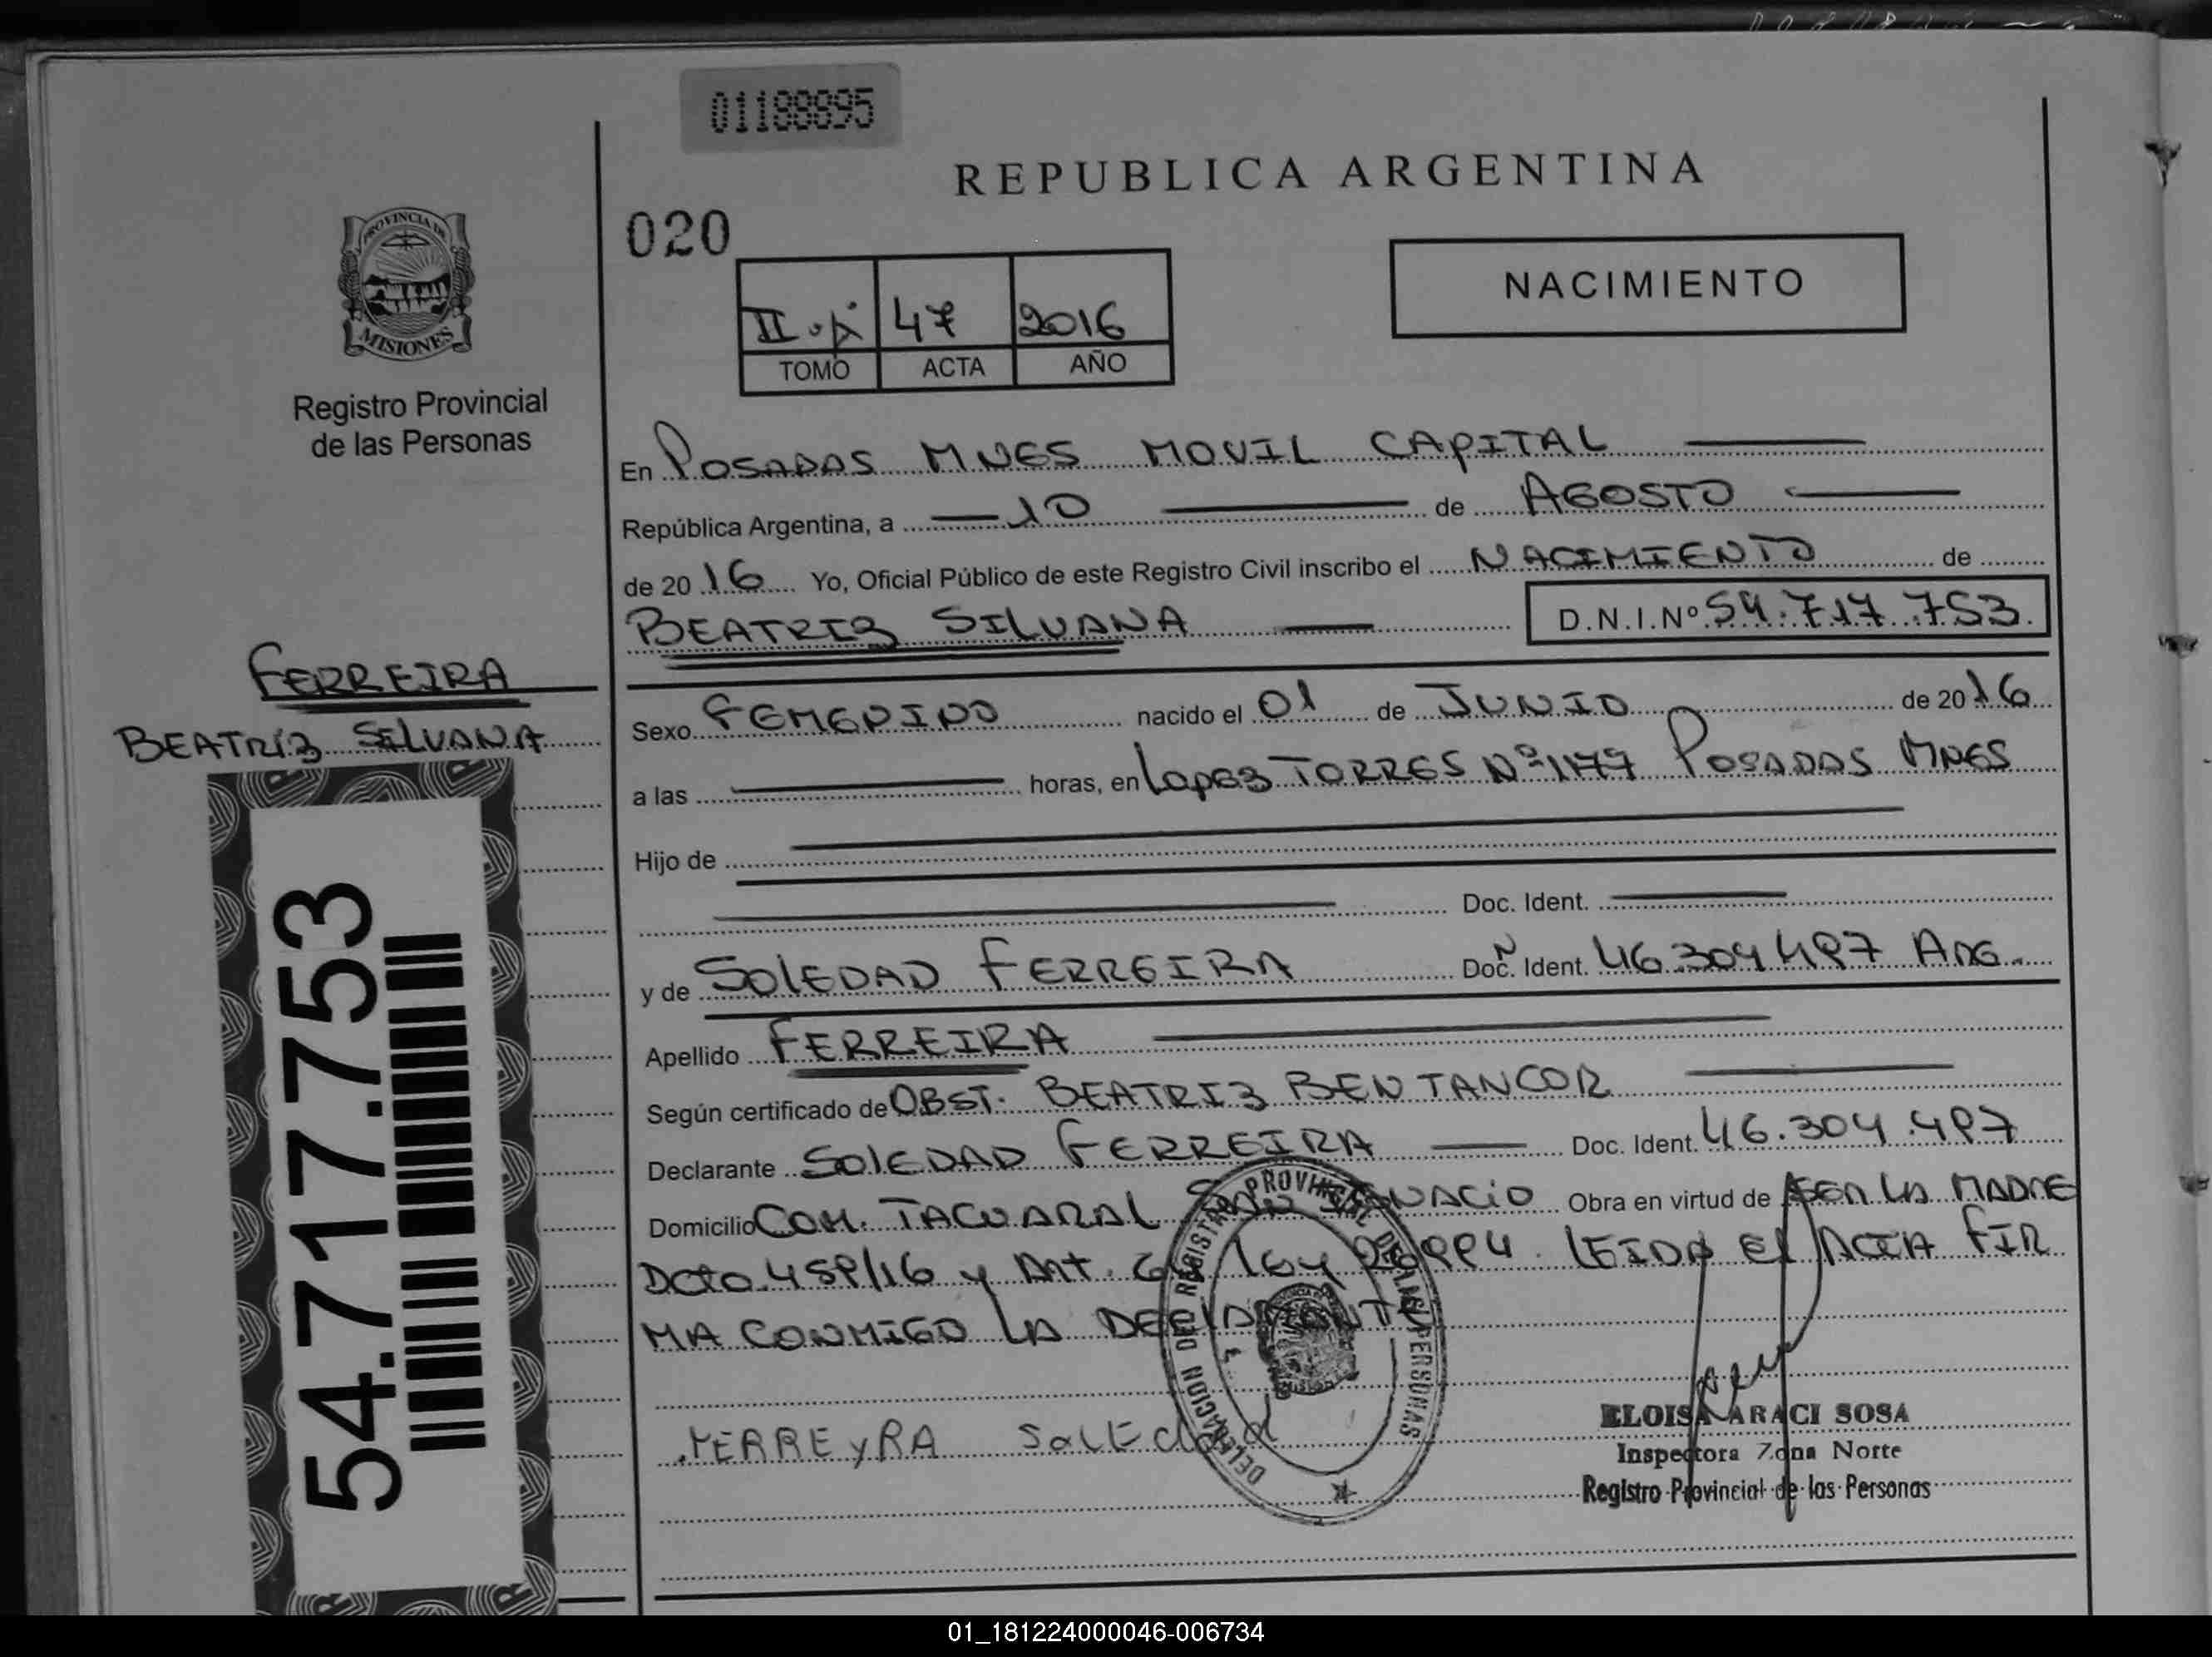 01188895
REPUBLICA ARGENTINA
020
NACIMIENTO
PROVINCIA DE
MISIONES
Registro Provincial
de las Personas
47 2016
TOMO ACTA AÑO
En POSADAS MNES MOVIL CAPITAL
República Argentina, a 10 de AGOSTO
de 2016 Yo, Oficial Público de este Registro Civil inscribo el NACIMIENTO de
BEATRIZ SILVANA D.N.I.Nº 54.717.753
FERREIRA
BEATRIZ SILVANA
Sexo FEMENINO nacido el 01 de JUNIO de 2016
a las horas, en LOPEZ TORRES Nº 1177 POSADAS MNES
Hijo de
Doc. Ident.
y de SOLEDAD FERREIRA Doc. Ident. 46.304.497 ARG.
Apellido FERREIRA
Según certificado de OBST. BEATRIZ BENTANCOR
Declarante SOLEDAD FERREIRA Doc. Ident. 46.304.497
Domicilio COM. TACUARAL SAN IGNACIO Obra en virtud de SER LA MADRE
Dcto. 459/16 y Art. Ley 26994. LEIDA EL ACTA FIR
MA CONMIGO LA DECLARANTE
FERREyRA SOLEdad
DELEGACION DEL REGISTRO PROVINCIAL DE LAS PERSONAS
ELOISA ARACI SOSA
Inspectora Zona Norte
Registro Provincial de las Personas
54.717.753
01_181224000046-006734